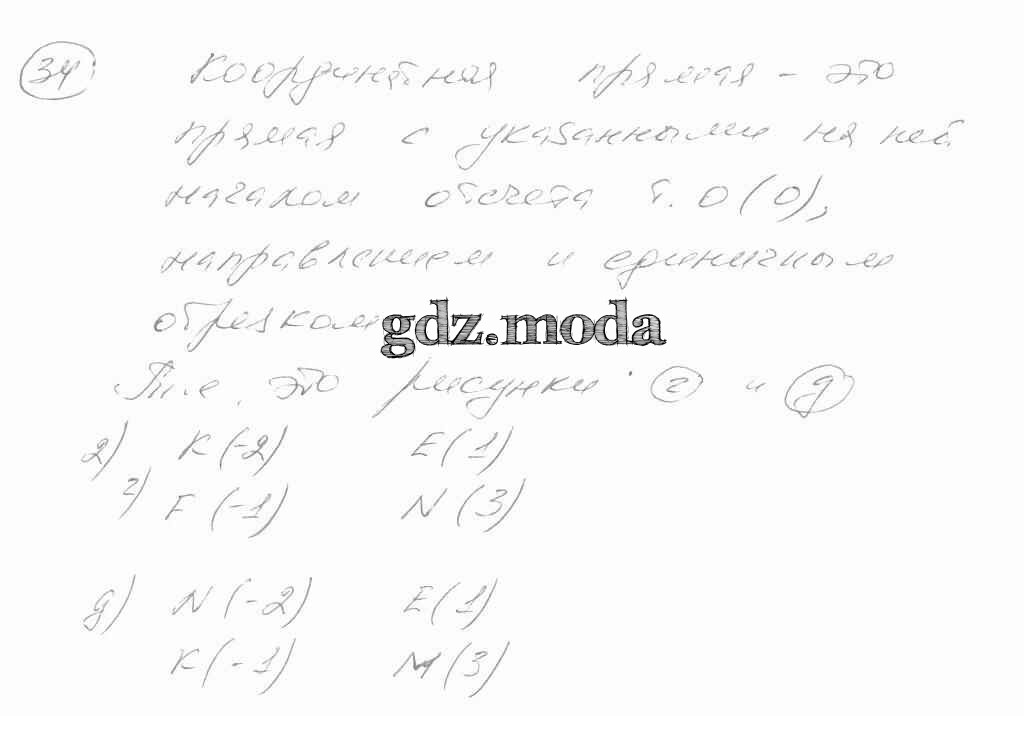 34 Координатная прямая - это
прямая с указанными на ней
началом отсчета т. О(0),
направлением и единичным
отрезком
gdz.moda
Т.е. это рисунки г и д
2) K(-2) E(1)
г) F(-1) N(3)
д) N(-2) E(1)
K(-1) M(3)